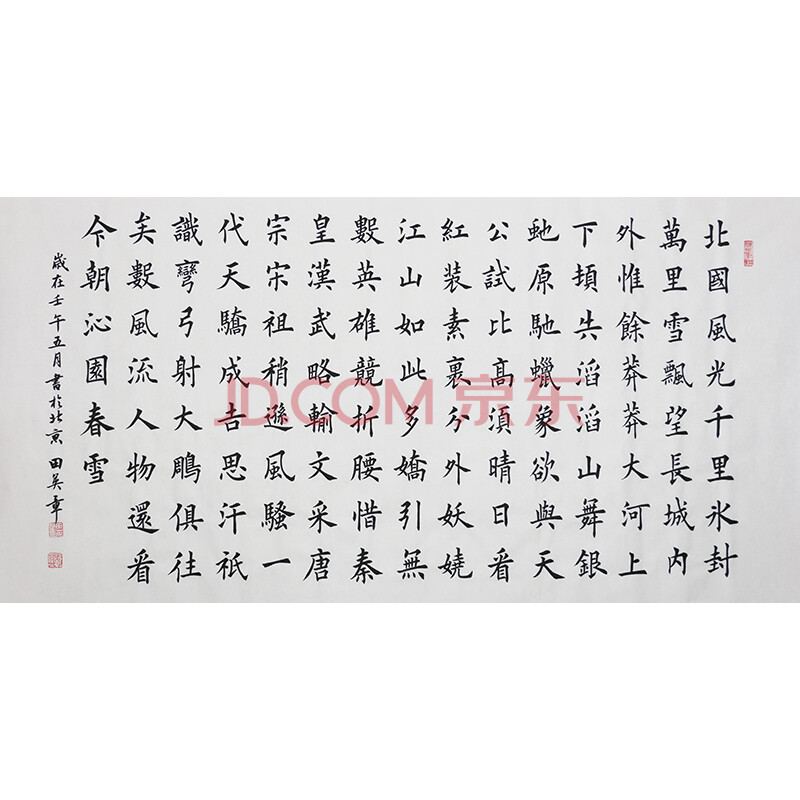 北國風光千里氷封
萬里雪飄望長城內
外惟餘莽莽大河上
下頓失滔滔山舞銀
虵原馳蠟象欲與天
公試比高須晴日看
紅裝素裹分外妖嬈
江山如此多嬌引無
數英雄競折腰惜秦
皇漢武略輸文采唐
宗宋祖稍遜風騷一
代天驕成吉思汗祇
識彎弓射大鵰俱往
矣數風流人物還看
今朝沁園春雪
歲在壬午五月書於北京田英章
JD.COM 京东